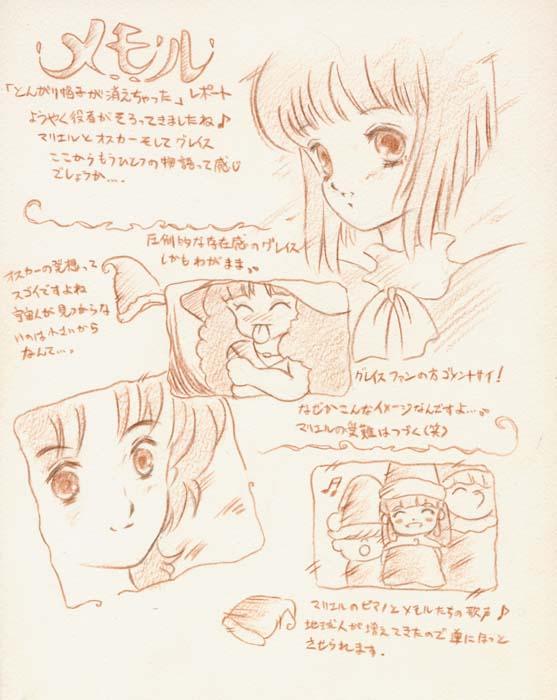 メモル
「とんがり帽子が消えちゃった」レポート
ようやく役者がそろってきましたね♪
マリエルとオスカーそしてグレイス
ここからもうひとつの物語って感じ
でしょうか...。
圧倒的な存在感のグレイス
しかもわがまま
オスカーの発想って
スゴイですよね
宇宙人が見つからな
いのは小さいから
なんて...。
グレイスファンの方ゴメンナサイ!
なぜかこんなイメージなんですよ...
マリエルの受難はつづく(笑)
マリエルのピアノとメモルたちの歌声♪
地球人が増えてきたので単にほっと
させられます.